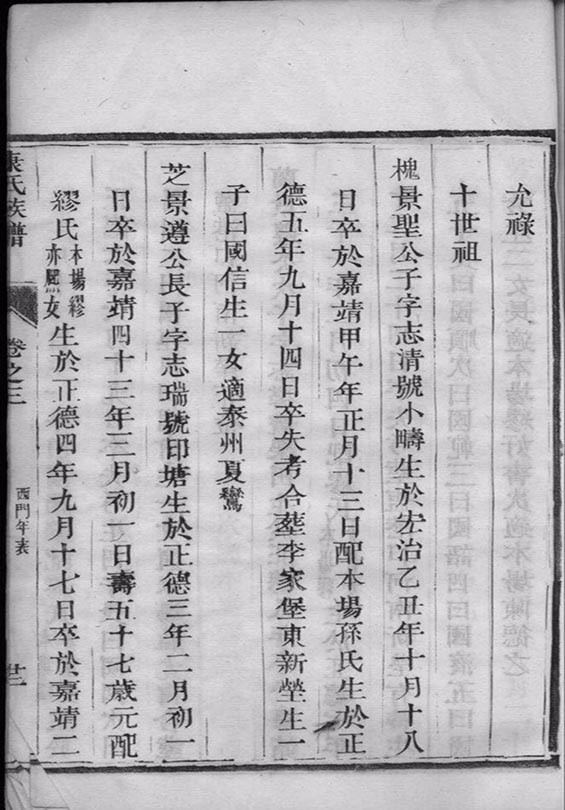 允祿
十世祖
槐景聖公子字志清號小疇生於宏治乙丑年十月十八
日卒於嘉靖甲午年正月十三日配本場孫氏生於正
德五年九月十四日卒失考合塟李家堡東新塋生一
子曰國信生一女適泰州夏鸞
芝景遵公長子字志瑞號印塘生於正德三年二月初一
日卒於嘉靖四十三年三月初一日壽五十七歲元配
繆氏本場繆亦鳳女生於正德四年九月十七日卒於嘉靖二
康氏族譜 卷之三 西門年表 廿二